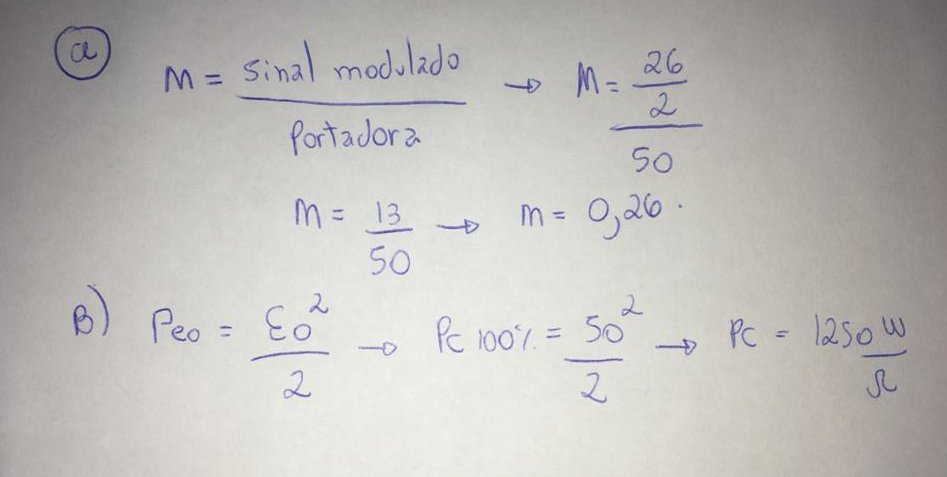 a
m = sinal modulado / Portadora → m = 26/2 / 50
m = 13/50 → m = 0,26.
B) Peo = Eo²/2 → Pc 100% = 50²/2 → Pc = 1250 W/Ω